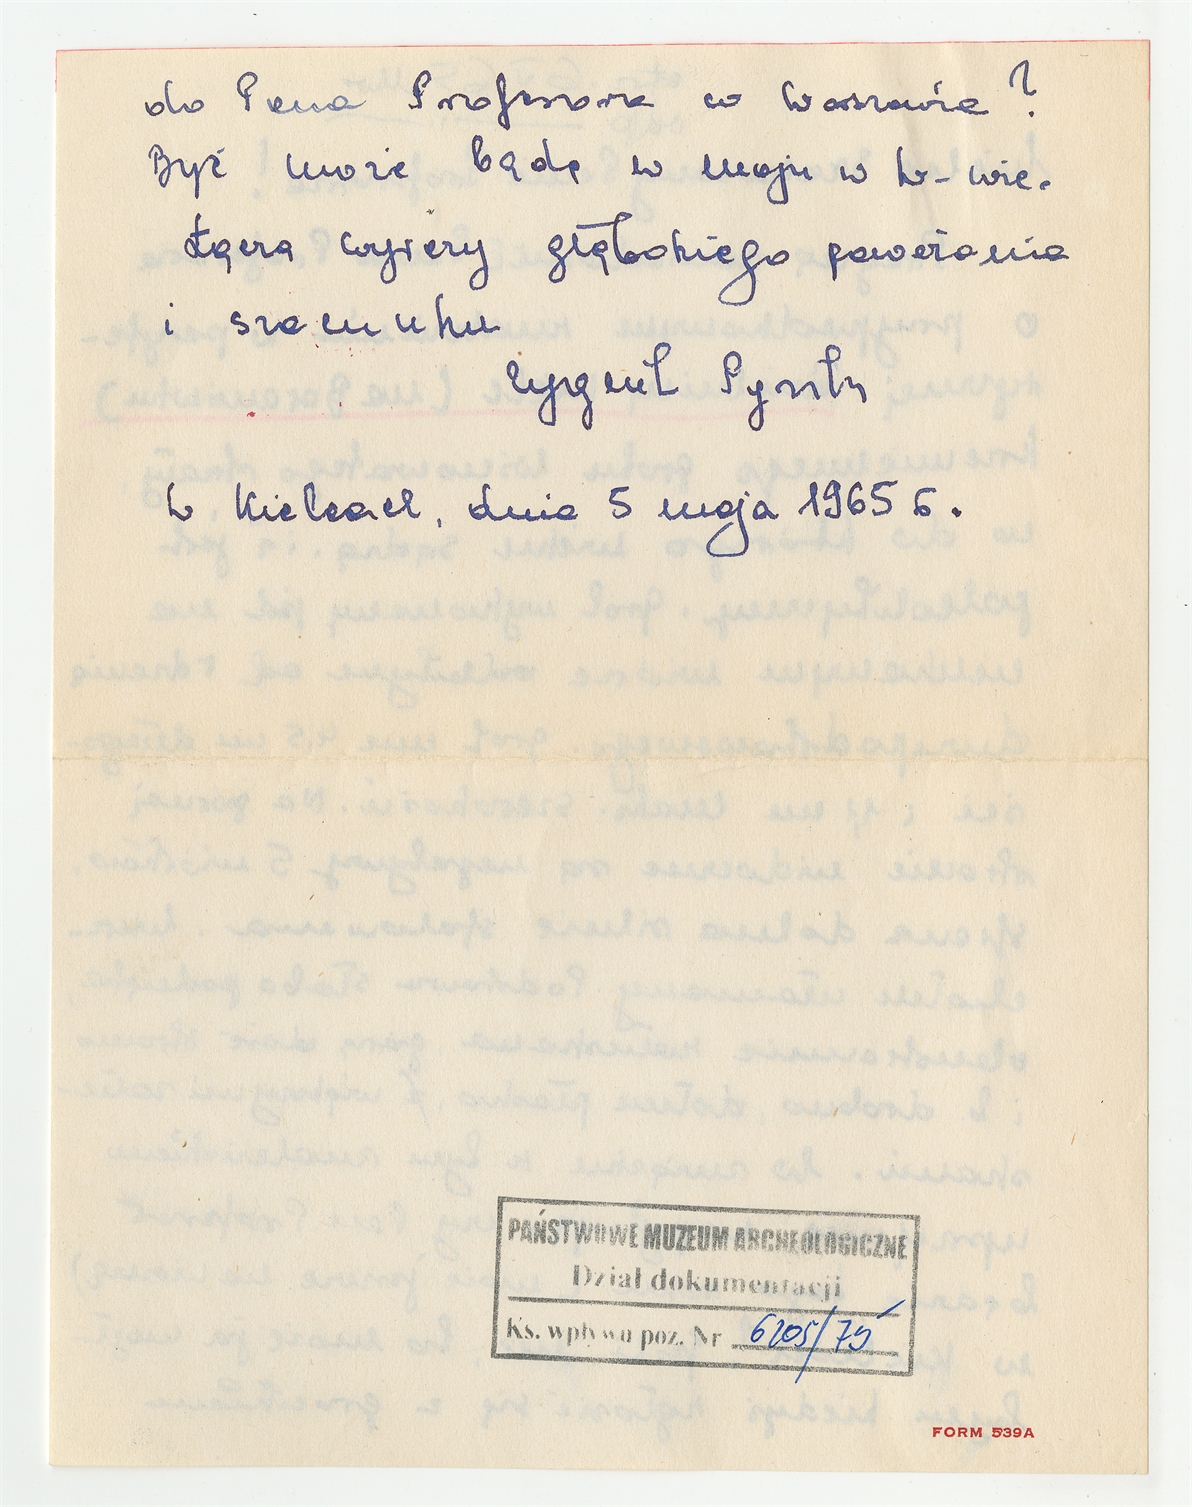 do Pana Profesora w Warszawie?
Być może będę w maju w W-wie.
Łączę wyrazy głębokiego poważania
i szacunku
Zygmunt Pyzik
W Kielcach, dnia 5 maja 1965 r.
PAŃSTWOWE MUZEUM ARCHEOLOGICZNE
Dział dokumentacji
Ks. wpływu poz. Nr 6205/75
FORM 539A